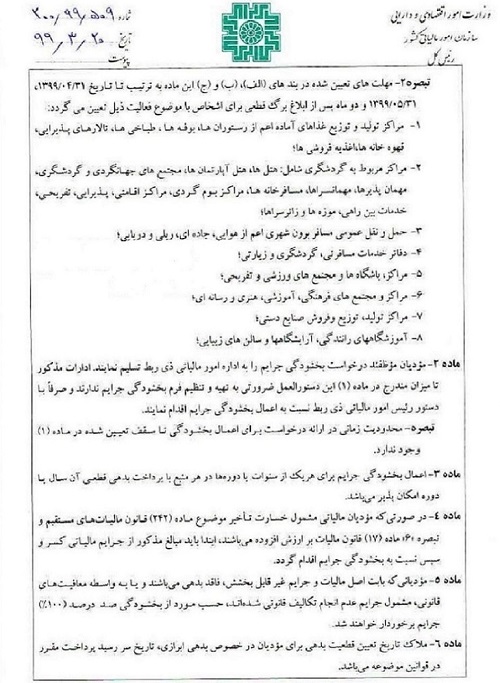 وزارت امور اقتصادی و دارایی
سازمان امور مالیاتی کشور
رئیس کل
شماره ۲۰۰/۹۹/۵۰۹
تاریخ ۹۹/۳/۲۰
پیوست
تبصره۲- مهلت های تعیین شده در بند های (الف)، (ب) و (ج) این ماده به ترتیب تا تاریخ ۱۳۹۹/۰۴/۳۱،
۱۳۹۹/۰۵/۳۱ و دو ماه پس از ابلاغ برگ قطعی برای اشخاص با موضوع فعالیت ذیل تعیین می گردد:
۱- مراکز تولید و توزیع غذاهای آماده اعم از رستوران ها، بوفه ها ، طباخی ها، تالارهای پذیرایی،
قهوه خانه ها،اغذیه فروشی ها؛
۲- مراکز مربوط به گردشگری شامل: هتل ها، هتل آپارتمان ها، مجتمع های جهانگردی و گردشگری،
مهمان پذیرها، مهمانسراها، مسافرخانه ها، مراکز بوم گردی، مراکز اقامتی، پذیرایی، تفریحی،
خدمات بین راهی، موزه ها و زائرسراها؛
۳- حمل و نقل عمومی مسافر برون شهری اعم از هوایی، جاده ای، ریلی و دریایی؛
۴- دفاتر خدمات مسافرتی، گردشگری و زیارتی؛
۵- مراکز، باشگاه ها و مجتمع های ورزشی و تفریحی؛
۶- مراکز و مجتمع های فرهنگی، آموزشی، هنری و رسانه ای؛
۷- مراکز تولید، توزیع وفروش صنایع دستی؛
۸- آموزشگاههای رانندگی، آرایشگاهها و سالن های زیبایی؛
ماده ۲- مؤدیان مؤظفند درخواست بخشودگی جرایم را به اداره امور مالیاتی ذی ربط تسلیم نمایند. ادارات مذکور
تا میزان مندرج در ماده (۱) این دستورالعمل ضرورتی به تهیه و تنظیم فرم بخشودگی جرایم ندارند و صرفاً با
دستور رئیس امور مالیاتی ذی ربط نسبت به اعمال بخشودگی جرایم اقدام نمایند.
تبصره- محدودیت زمانی در ارائه درخواست برای اعمال بخشودگی تا سقف تعیین شده در ماده (۱)
وجود ندارد.
ماده ۳- اعمال بخشودگی جرایم برای هریک از سنوات یا دوره‌ها در هر منبع با پرداخت بدهی قطعی آن سال یا
دوره امکان پذیر می‌باشد.
ماده ۴- در صورتی‌که مؤدیان مالیاتی مشمول خسارت تأخیر موضوع ماده (۲۴۲) قانون مالیات‌های مستقیم و
تبصره «۶» ماده (۱۷) قانون مالیات بر ارزش افزوده می‌باشند، ابتدا باید مبالغ مذکور از جرایم مالیاتی کسر و
سپس نسبت به بخشودگی جرایم اقدام گردد.
ماده ۵- مؤدیانی‌که بابت اصل مالیات و جرایم غیر قابل بخشش، فاقد بدهی می‌باشند و یا به واسطه معافیت‌های
قانونی، مشمول جرایم عدم انجام تکالیف قانونی شده‌اند، حسب مورد از بخشودگی صد درصد (۱۰۰٪)
جرایم برخوردار خواهند شد.
ماده ۶- ملاک تاریخ تعیین قطعیت بدهی برای مؤدیان در خصوص بدهی ابرازی، تاریخ سر رسید پرداخت مقرر
در قوانین موضوعه می‌باشد.